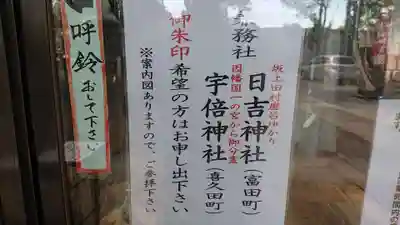 務社
坂上田村麿呂ゆかり
日吉神社(富田町)
因幡国一の宮から御分霊
宇倍神社(喜久田町)
御朱印希望の方はお申し出下さい
※案内図ありますので、ご参拝下さい
呼鈴おして下さい